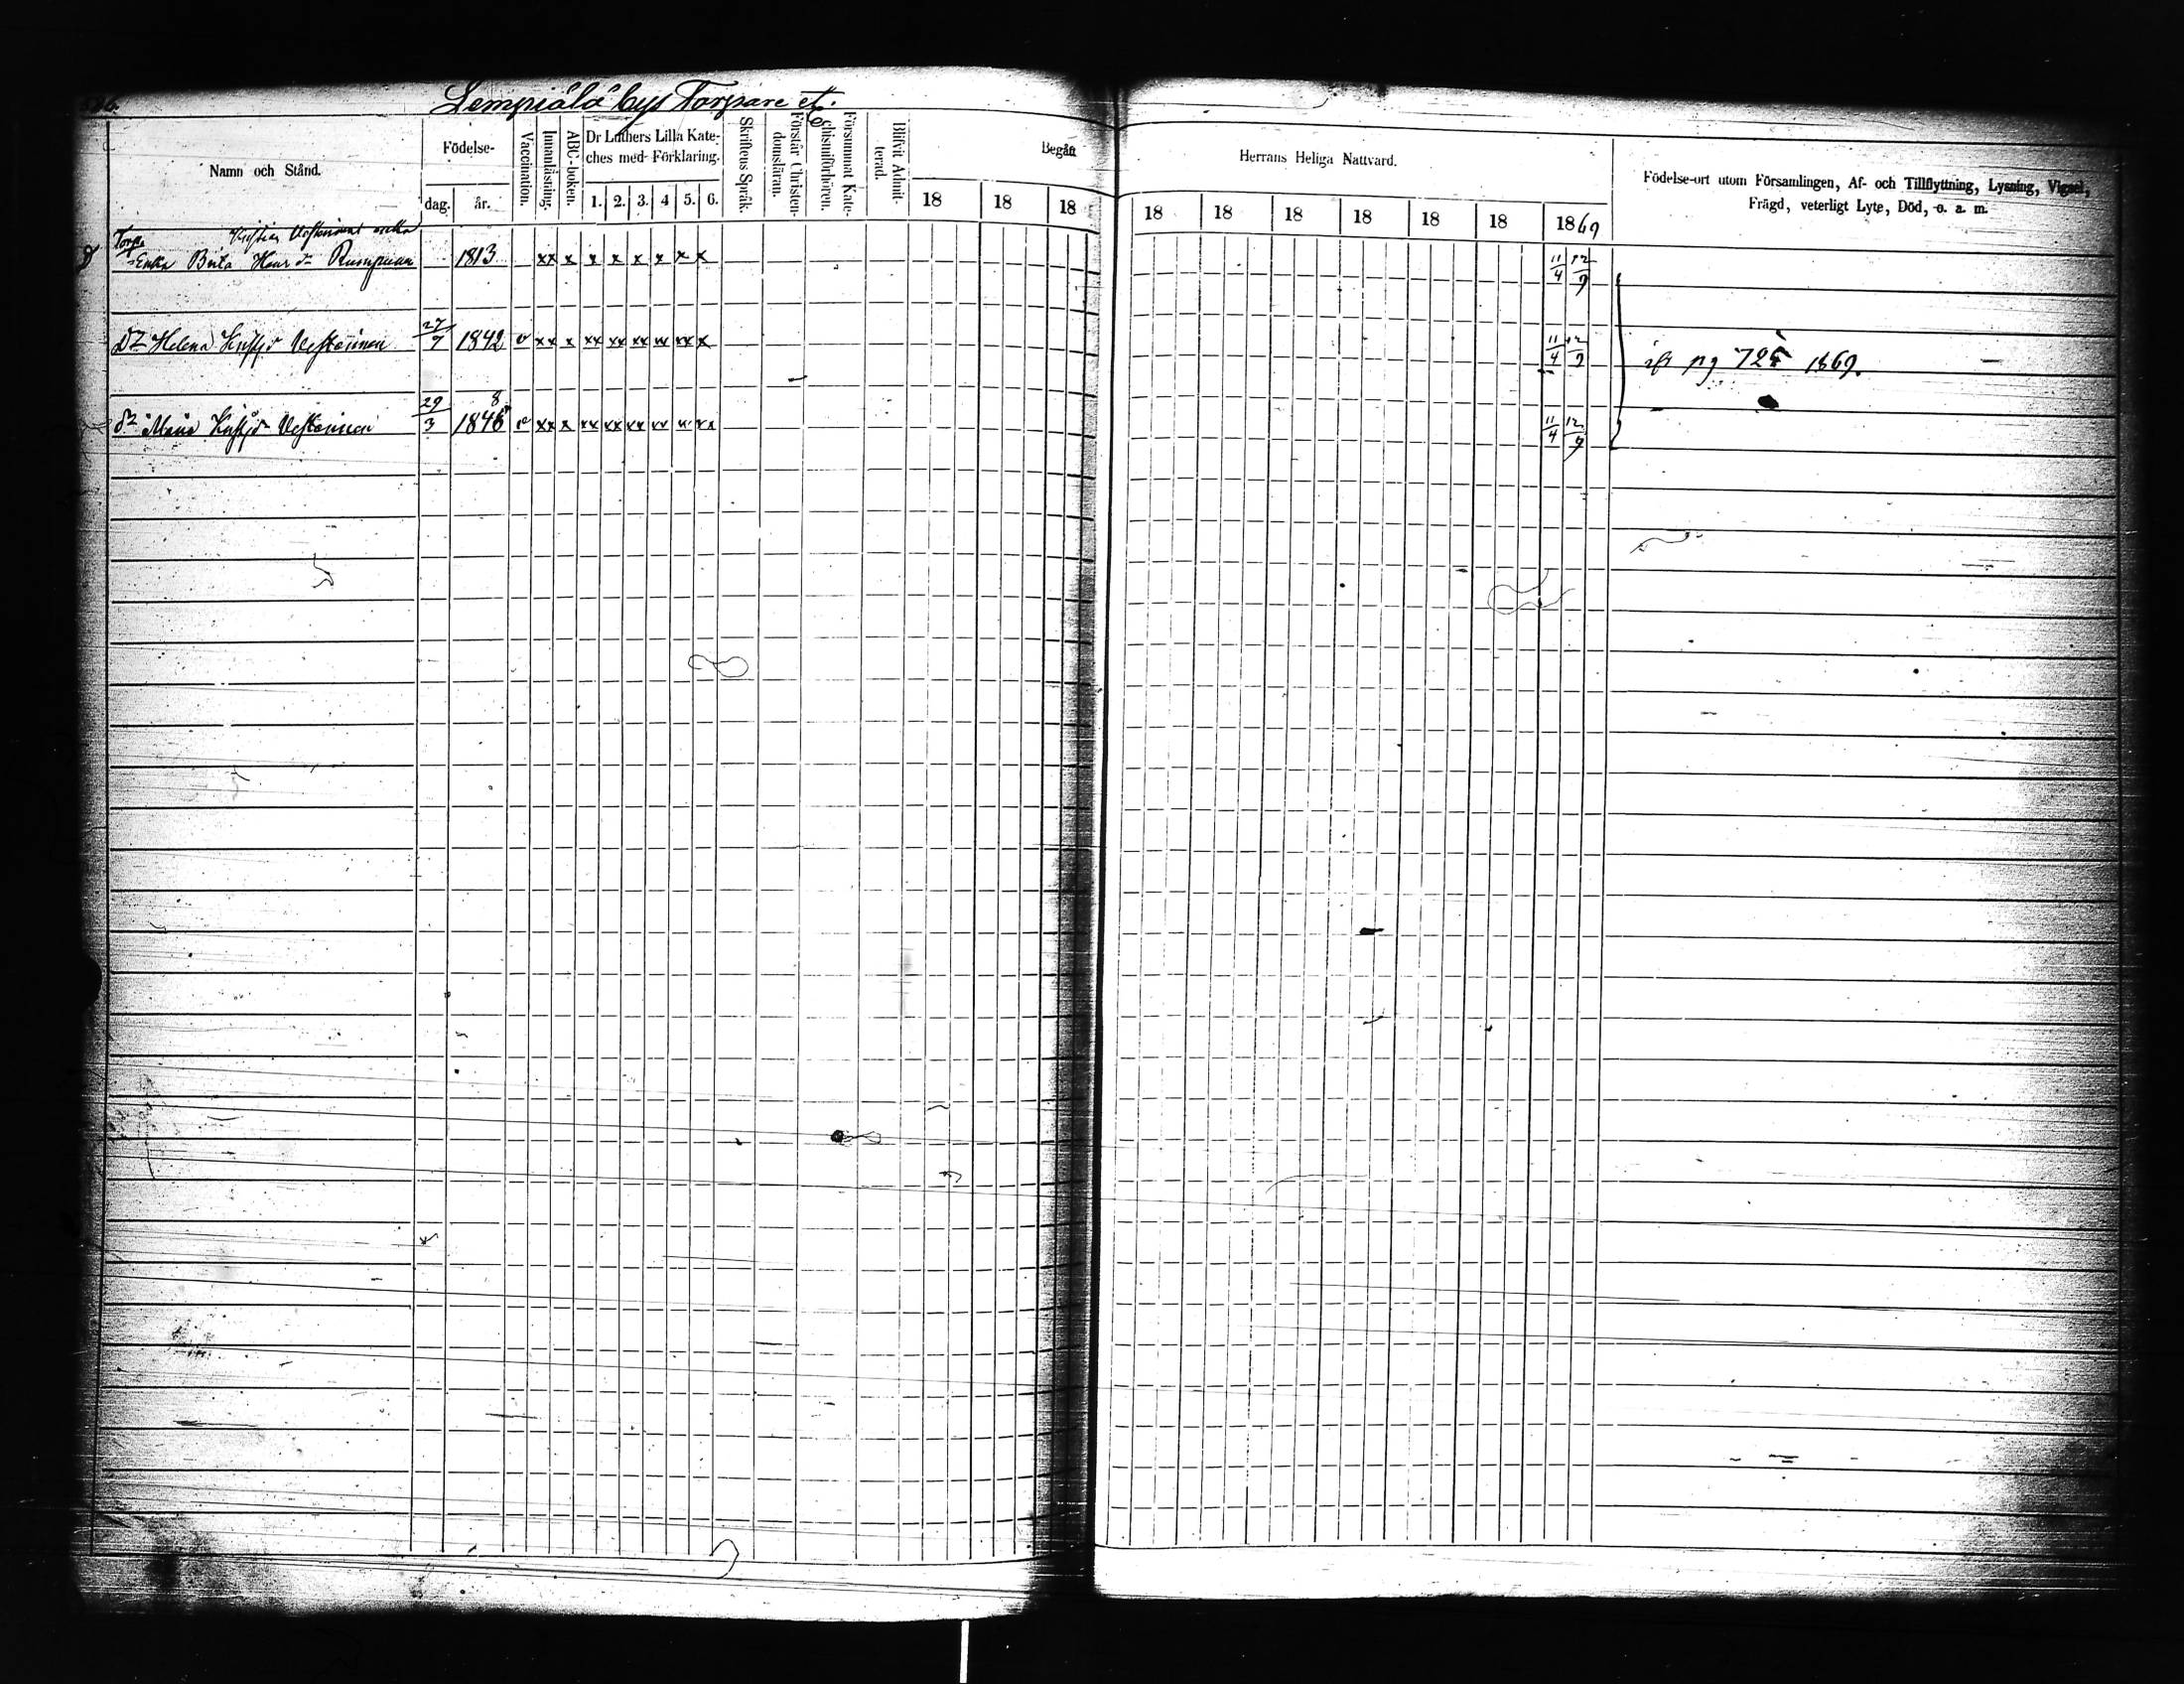 Lempiälä bys Torpare et.
Namn och Stånd.
Födelse-
dag. år.
Vaccination.
Innanläsning.
ABC-boken.
Dr Luthers Lilla Kate-
ches med Förklaring.
1. 2. 3. 4 5. 6.
Skriftens Språk.
Förstår Christen-
domsläran.
Försummat Kate-
chismiförhören.
Blifvit Admit-
terad.
Begått
Herrans Heliga Nattvard.
18 18 18 18 18 18 18 18 18 1869
Födelse-ort utom Församlingen, Af- och Tillflyttning, Lysning, Vigsel,
Frägd, veterligt Lyte, Död, o. a. m.
Torp. enka
Enka Brita Henr dr 1813 xx x x x x x x x 11/4 12/9
Dr Helena Vesterinen 27/7 1842 v xx x xx xx xx xx xx x 11/4 12/9
pg 725 1869.
8
dr Maria Vesterinen 29/3 1846 v xx x xx xx xx xx xx 11/4 12/9